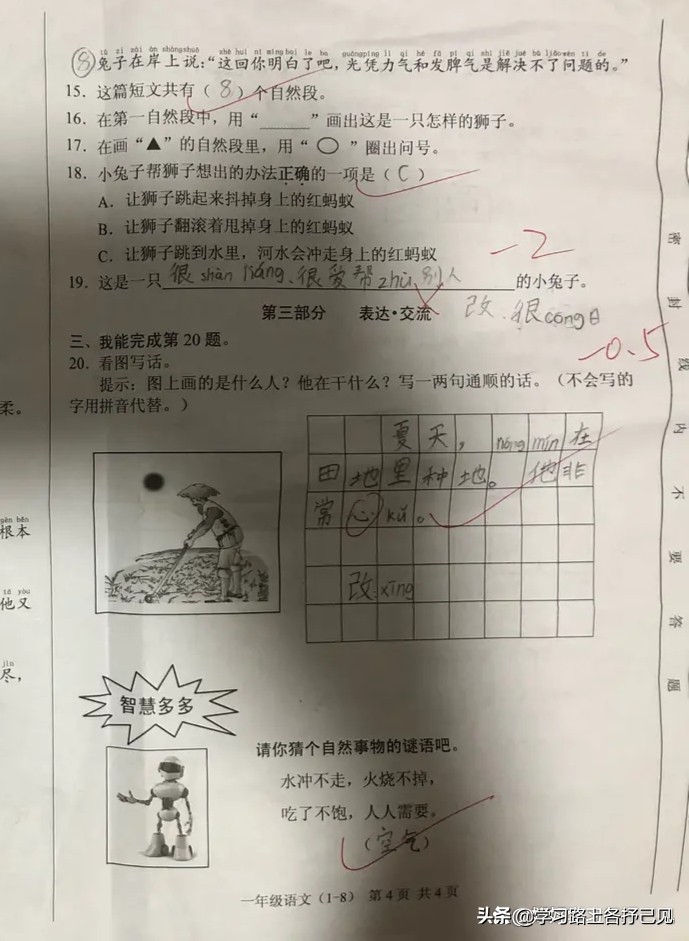 tù zi zài àn shàng shuō zhè huí nǐ míng bai le ba guāng píng lì qi hé fā pí qi shì jiě jué bù liǎo wèn tí de
⑧兔子在岸上说:“这回你明白了吧,光凭力气和发脾气是解决不了问题的。”
15. 这篇短文共有(8)个自然段。
16. 在第一自然段中,用“______”画出这是一只怎样的狮子。
17. 在画“▲”的自然段里,用“○”圈出问号。
18. 小兔子帮狮子想出的办法正确的一项是(C)
A. 让狮子跳起来抖掉身上的红蚂蚁
B. 让狮子翻滚着甩掉身上的红蚂蚁
C. 让狮子跳到水里,河水会冲走身上的红蚂蚁
-2
19. 这是一只很shàn liáng、很爱帮zhù别人的小兔子。
改:很cōng
第三部分 表达·交流
-0.5
三、我能完成第 20 题。
20. 看图写话。
提示:图上画的是什么人?他在干什么?写一两句通顺的话。(不会写的
字用拼音代替。)
夏天,nóng mín在
田地里种地。他非
常心kǔ。
改:xīng
智慧多多
请你猜个自然事物的谜语吧。
水冲不走,火烧不掉,
吃了不饱,人人需要。
(空气)
一年级语文(1-8) 第4页 共4页
柔。
gēn běn
根本
tā yòu
他又
jìn
尽,
密
封
线
内
不
要
答
题
头条 @学习路上各抒己见